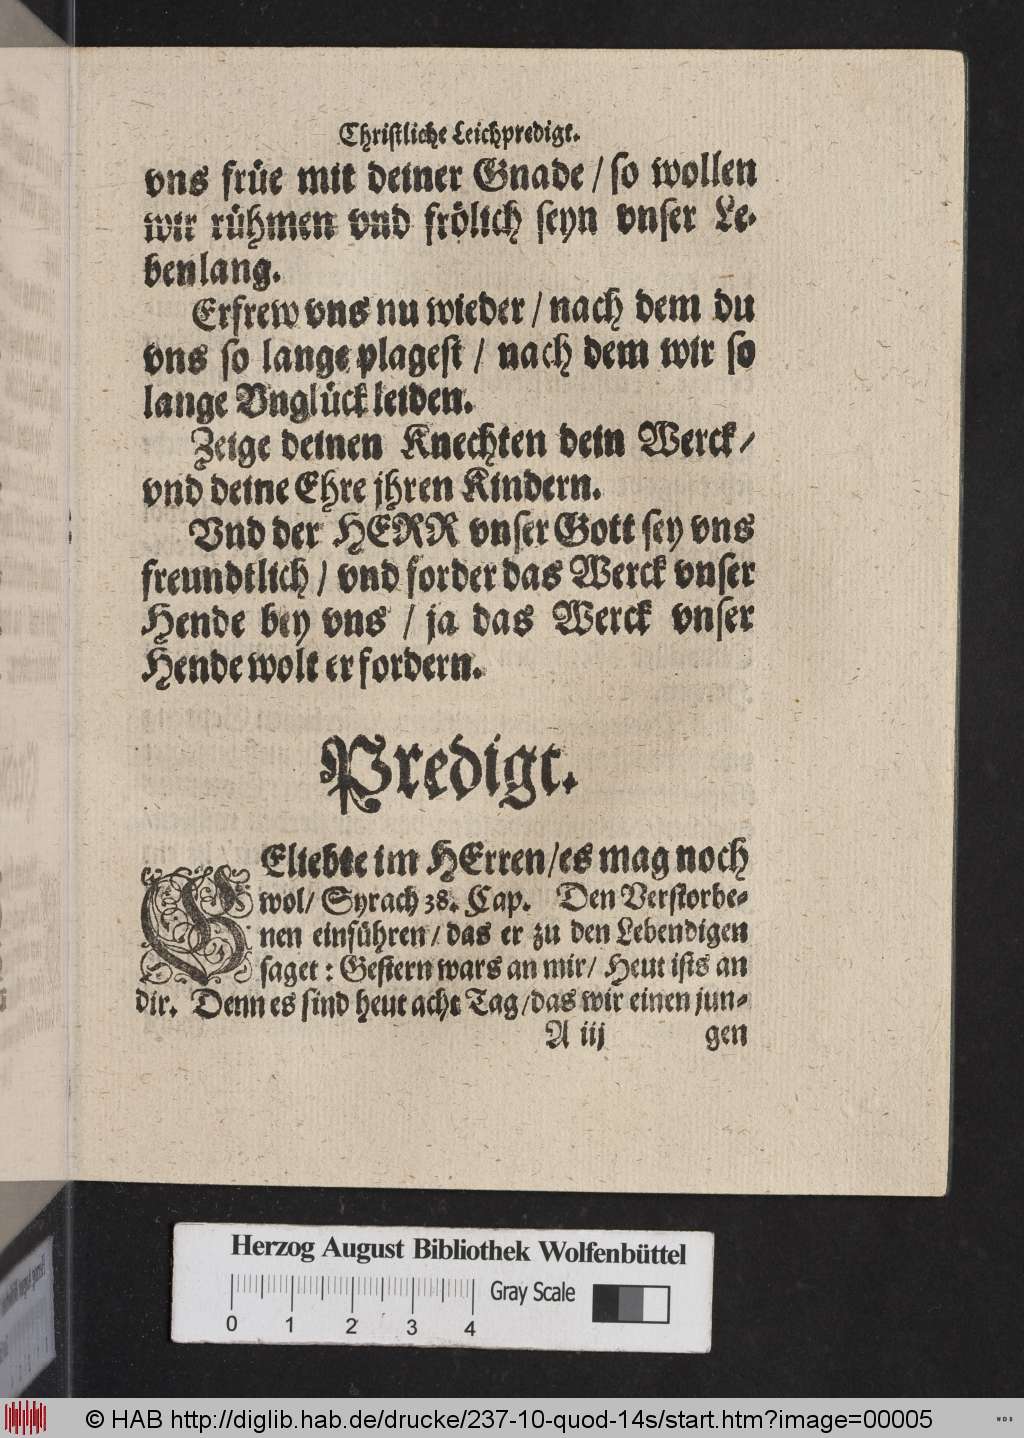 Christliche Leichpredigt.
vns früe mit deiner Gnade / so wollen
wir rühmen vnd frölich seyn vnser Le-
benlang.
Erfrew vns nu wieder / nach dem du
vns so lange plagest / nach dem wir so
lange Vnglück leiden.
Zeige deinen Knechten dein Werck /
vnd deine Ehre jhren Kindern.
Vnd der HERR vnser Gott sey vns
freundtlich / vnd forder das Werck vnser
Hende bey vns / ja das Werck vnser
Hende wolt er fordern.
Predigt.
GEliebte im HErren / es mag noch
wol / Syrach 38. Cap. Den Verstorbe-
nen einführen / das er zu den Lebendigen
saget : Gestern wars an mir / Heut ists an
dir. Denn es sind heut acht Tag / das wir einen jun-
A iij gen
Herzog August Bibliothek Wolfenbüttel
Gray Scale
0 1 2 3 4
© HAB http://diglib.hab.de/drucke/237-10-quod-14s/start.htm?image=00005